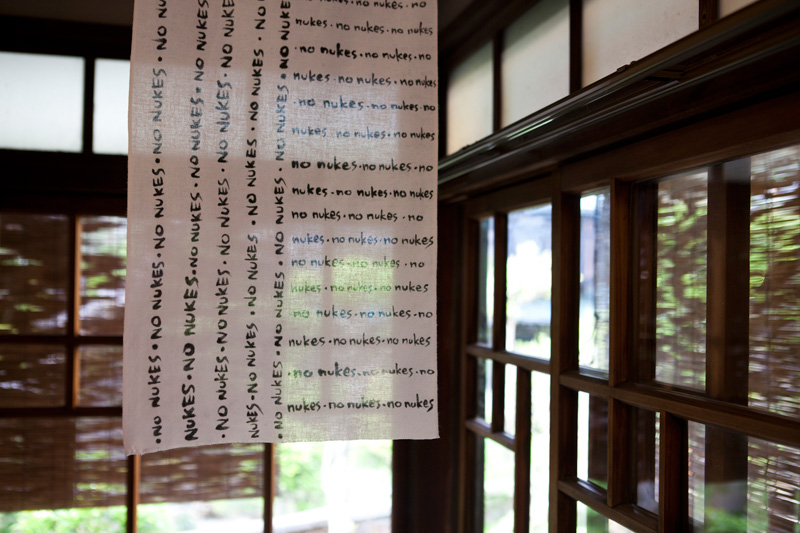 ·NO NUKES·NO NUKES·NO NUKES·NO NUKES·NO NU
NUKES·NO NUKES·NO NUKES·NO NUKES·NO NUKES
·NO NUKES·NO NUKES·NO NUKES·NO NUKES·NO NUKES
NUKES·NO NUKES·NO NUKES·NO NUKES·NO NUKES·NO
·NO NUKES·NO NUKES·NO NUKES·NO NUKES·NO NUKES
no nukes·no nukes·no
nukes·no nukes·no nukes
·no nukes·no nukes·no
nukes·no nukes·no nukes
·no nukes·no nukes·no
nukes·no nukes·no nukes
no nukes·no nukes·no
nukes·no nukes·no nukes
no nukes·no nukes·no
nukes·no nukes·no nukes
no nukes·no nukes·no
nukes·no nukes·no nukes
no nukes·no nukes·no
nukes·no nukes·no nukes
·no nukes·no nukes·no
nukes·no nukes·no nukes